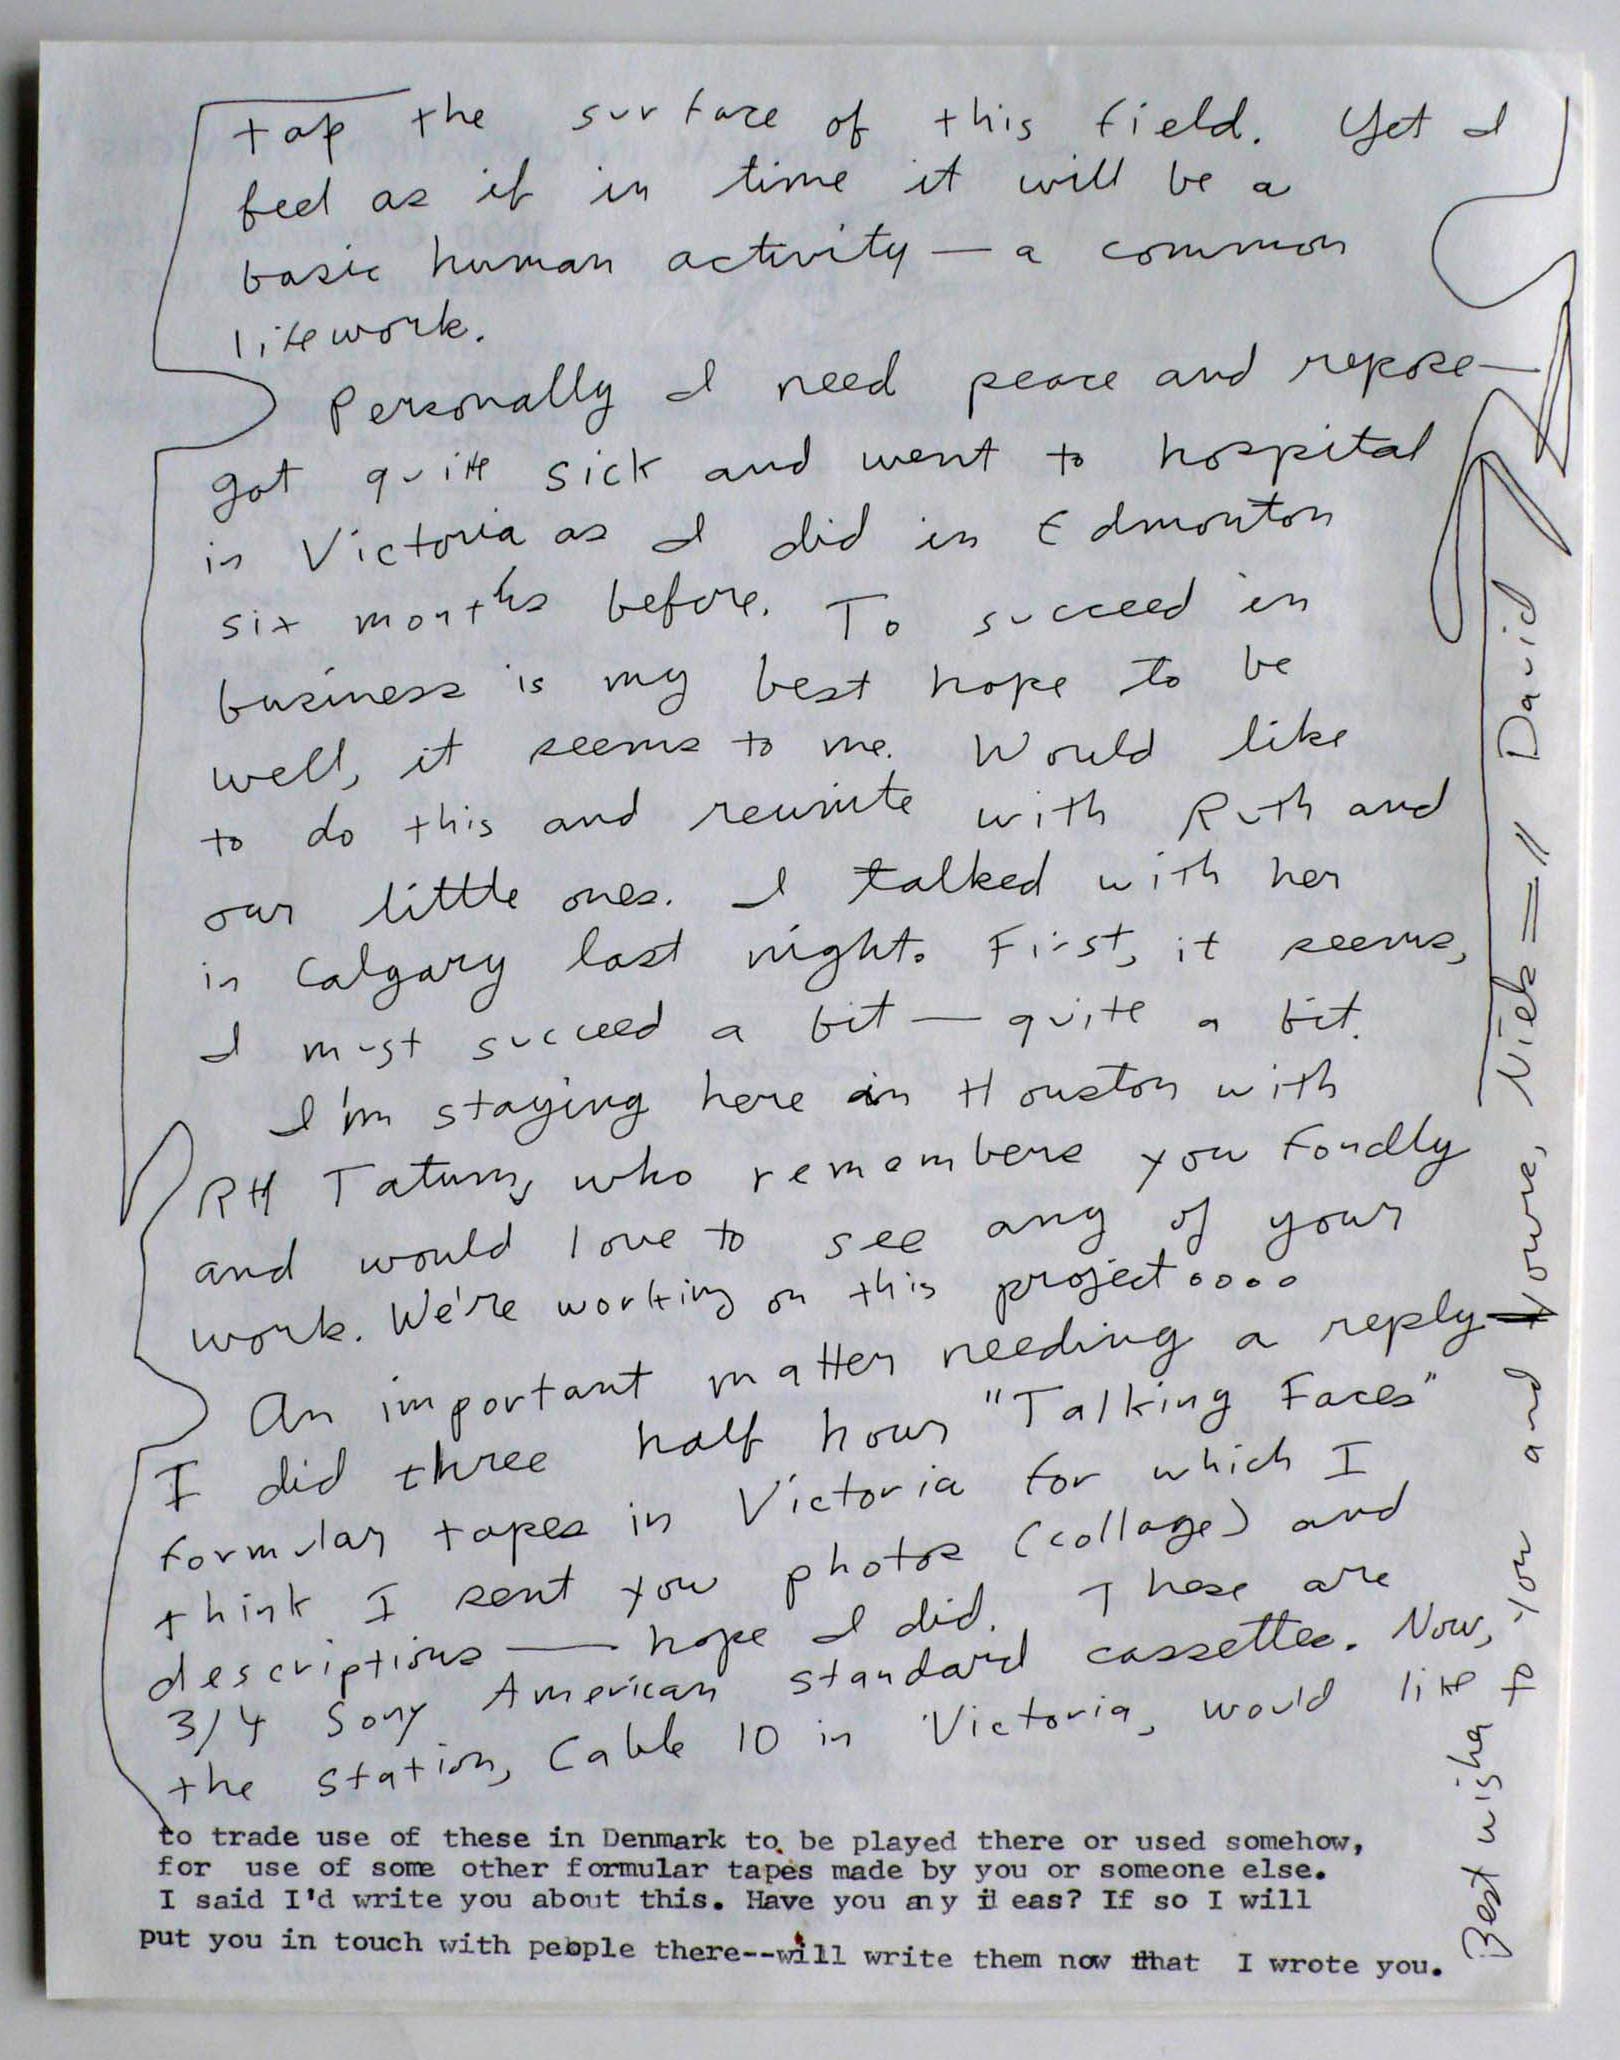 tap the surface of this field. Yet I
feel as if in time it will be a
basic human activity — a common
lifework.
Personally I need peace and repose —
got quite sick and went to hospital
in Victoria as I did in Edmonton
six months before. To succeed in
business is my best hope to be
well, it seems to me. Would like
to do this and reunite with Ruth and
our little ones. I talked with her
in Calgary last night. First, it seems,
I must succeed a bit — quite a bit.
I'm staying here in Houston with
RH Tatum, who remembers you fondly
and would love to see any of your
work. We're working on this project....
An important matter needing a reply —
I did three half hour "Talking Faces"
formular tapes in Victoria for which I
think I sent you photos (collage) and
descriptions — hope I did. These are
3/4 Sony American standard cassettes. Now,
the station, Cable 10 in Victoria, would like
to trade use of these in Denmark to be played there or used somehow,
for use of some other formular tapes made by you or someone else.
I said I'd write you about this. Have you any ideas? If so I will
put you in touch with people there--will write them now that I wrote you.
Best wishes to you and Yours, Niels = // David